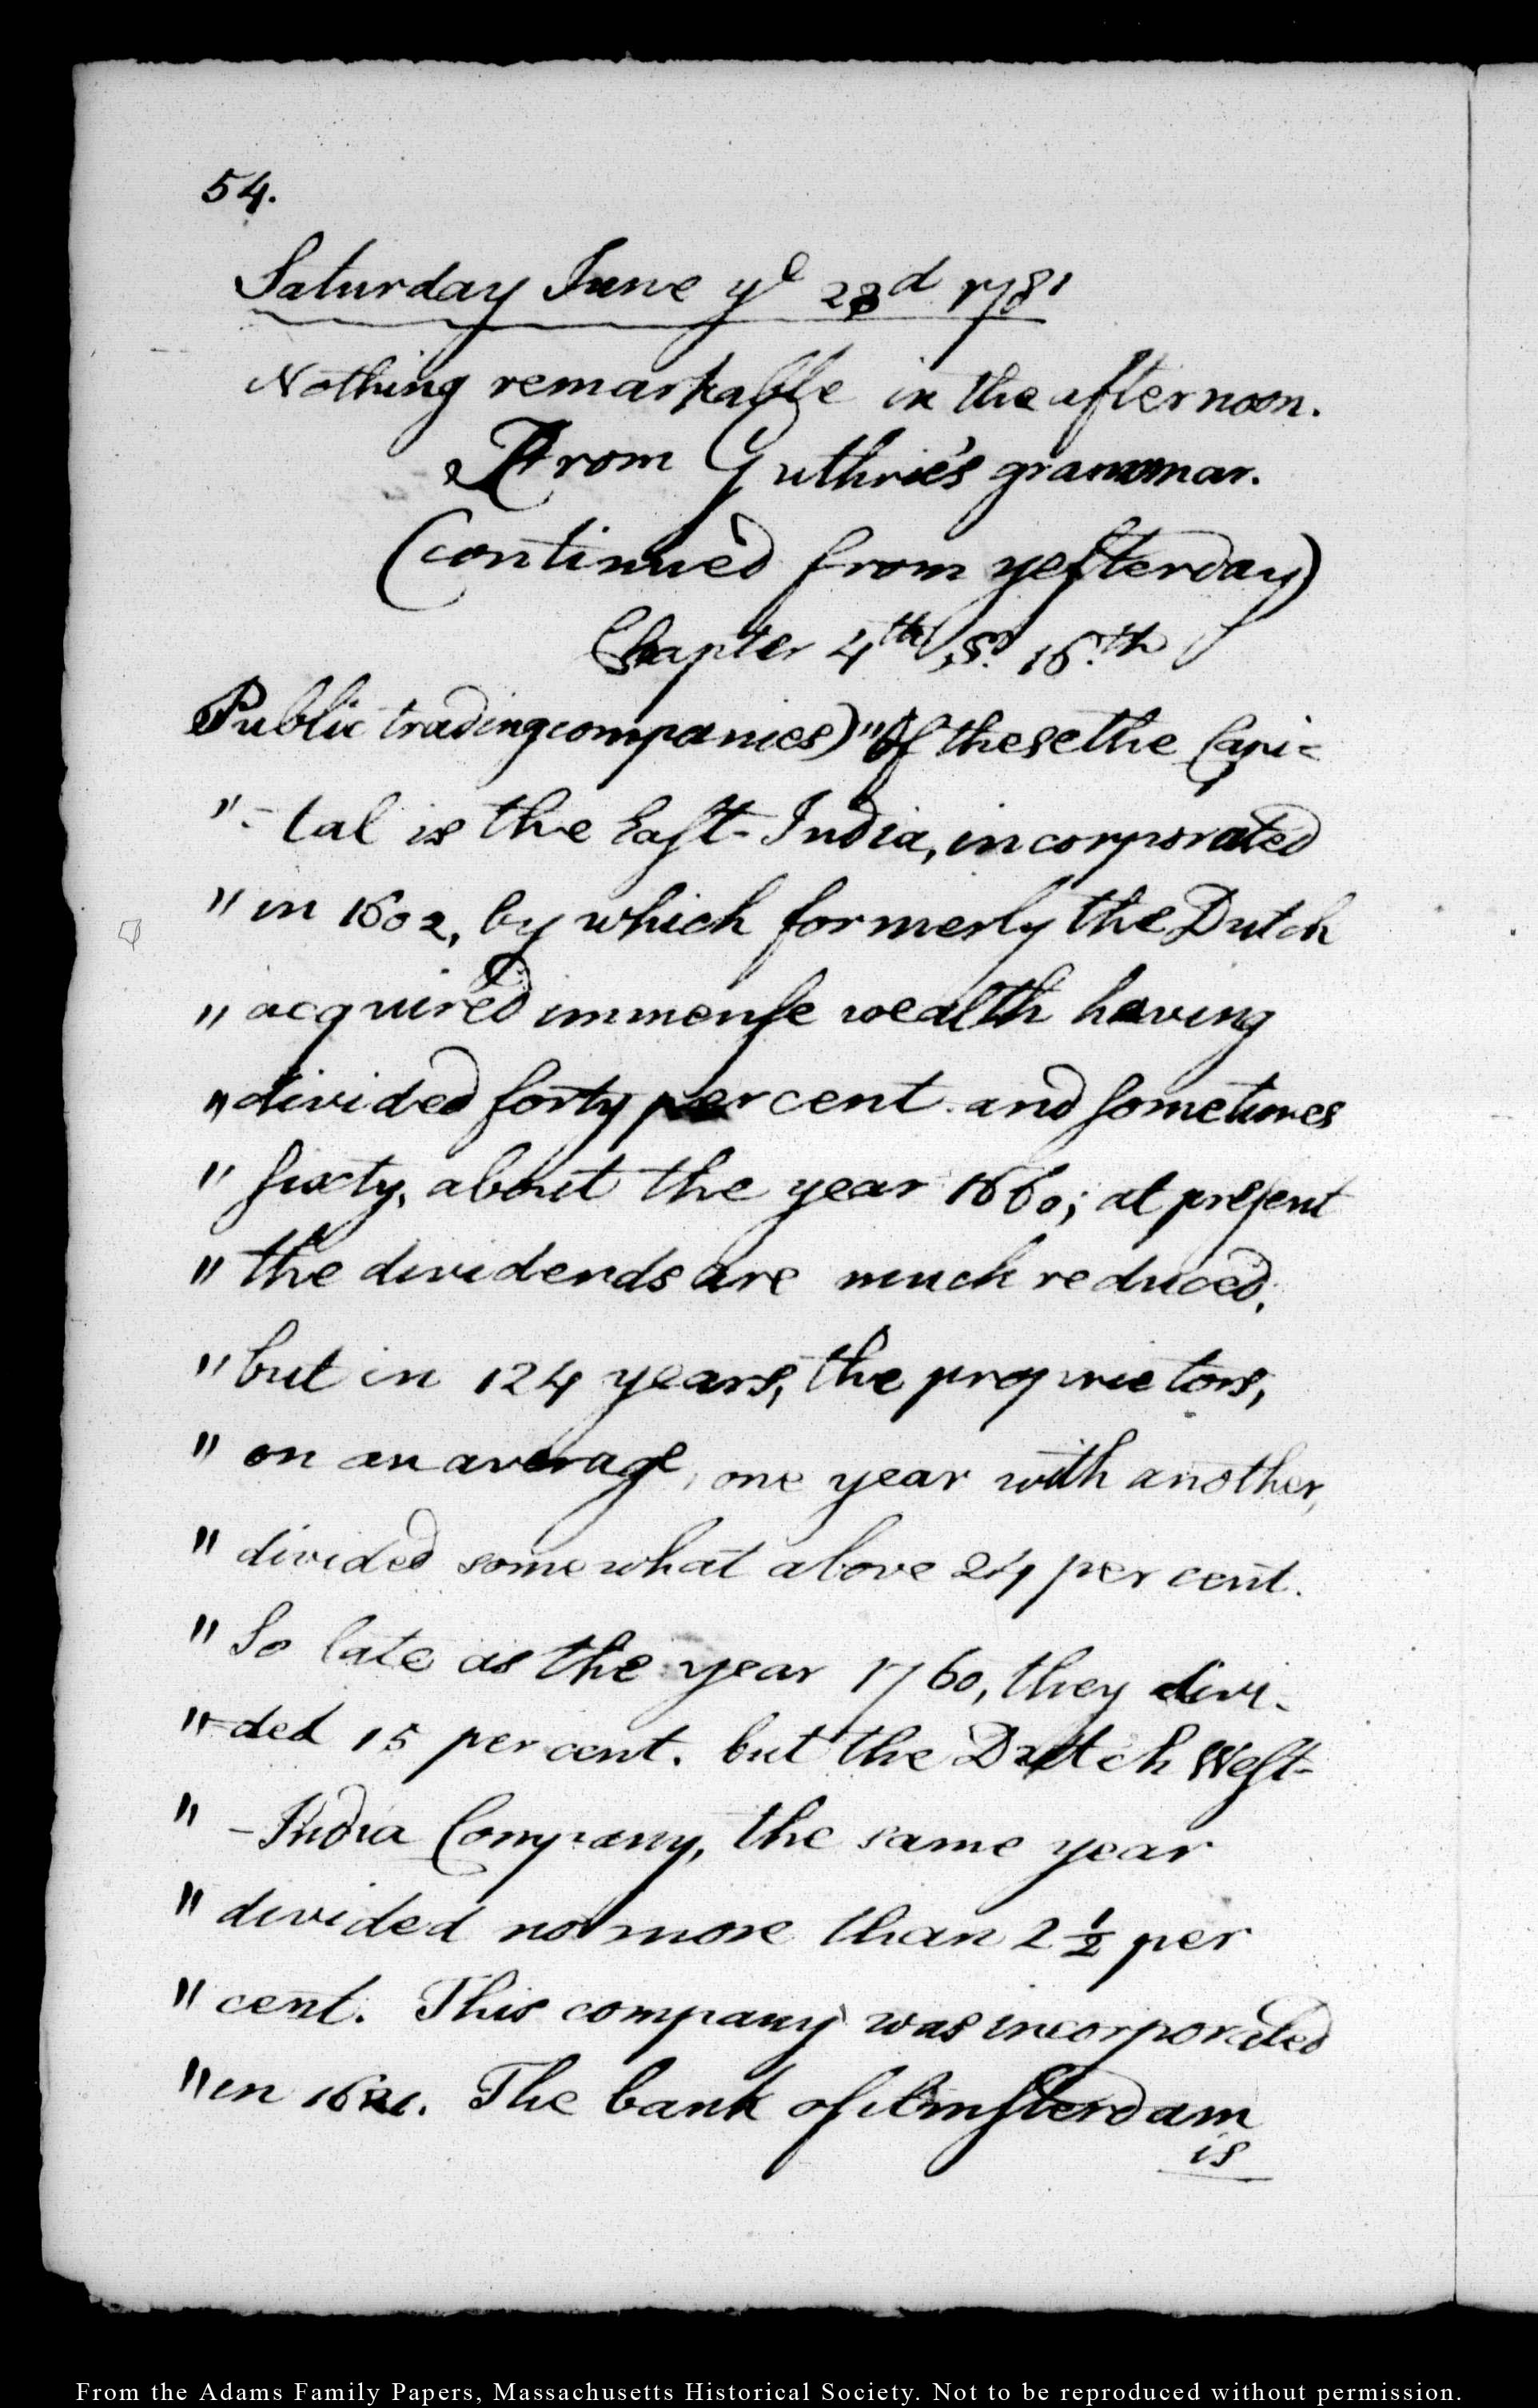 54.
Saturday June ye 23d 1781
Nothing remarkable in the afternoon.
From Guthrie's grammar.
(continued from yesterday)
Chapter 4th S. 16th
Public trading companies) "Of these the Capi-
"-tal is the East-India, incorporated
"in 1602, by which formerly the Dutch
"acquired immense wealth having
"divided forty per cent and sometimes
"sixty, about the year 1660; at present
"the dividends are much reduced,
"but in 124 years, the proprietors,
"on an average, one year with another,
"divided somewhat above 24 per cent.
"So late as the year 1760, they divi-
"-ded 15 per cent. but the Dutch West-
"-India Company, the same year
"divided no more than 2 ½ per
"cent. This company was incorporated
"in 1621. The bank of Amsterdam
is
From the Adams Family Papers, Massachusetts Historical Society. Not to be reproduced without permission.